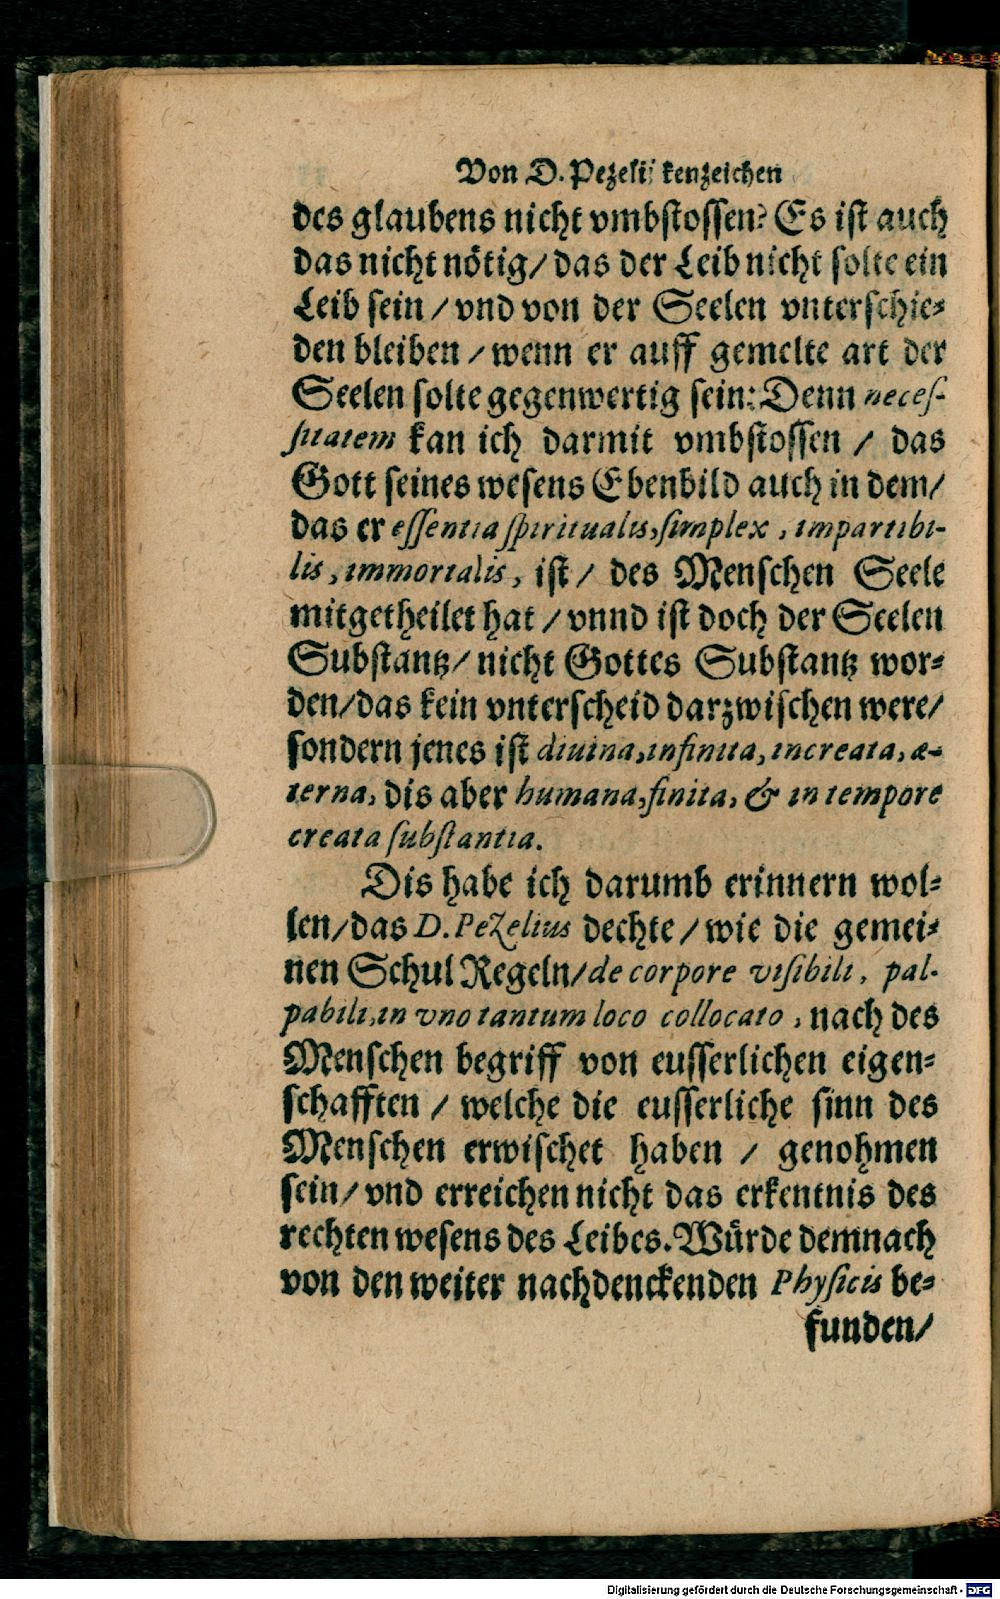 Von D. Pezelij kenzeichen
des glaubens nicht vmbstossen? Es ist auch
das nicht nötig/ das der Leib nicht solte ein
Leib sein / vnd von der Seelen vnterschie⸗
den bleiben / wenn er auff gemelte art der
Seelen solte gegenwertig sein: Denn neceſ-
ſitatem kan ich darmit vmbstossen / das
Gott seines wesens Ebenbild auch in dem/
das er eſſentia ſpiritualis, ſimplex, impartibi-
lis, immortalis, ist / des Menschen Seele
mitgetheilet hat / vnnd ist doch der Seelen
Substantz/ nicht Gottes Substantz wor⸗
den/ das kein vnterscheid darzwischen were/
sondern jenes ist diuina, infinita, increata, æ-
terna, dis aber humana, finita, & in tempore
creata ſubſtantia.
Dis habe ich darumb erinnern wol⸗
len/ das D. Pezelius dechte / wie die gemei⸗
nen Schul Regeln/ de corpore viſibili, pal-
pabili, in vno tantum loco collocato, nach des
Menschen begriff von eusserlichen eigen⸗
schafften / welche die eusserliche sinn des
Menschen erwischet haben / genohmen
sein/ vnd erreichen nicht das erkentnis des
rechten wesens des Leibes. Würde demnach
von den weiter nachdenckenden Phyſicis be⸗
funden/
Digitalisierung gefördert durch die Deutsche Forschungsgemeinschaft - DFG